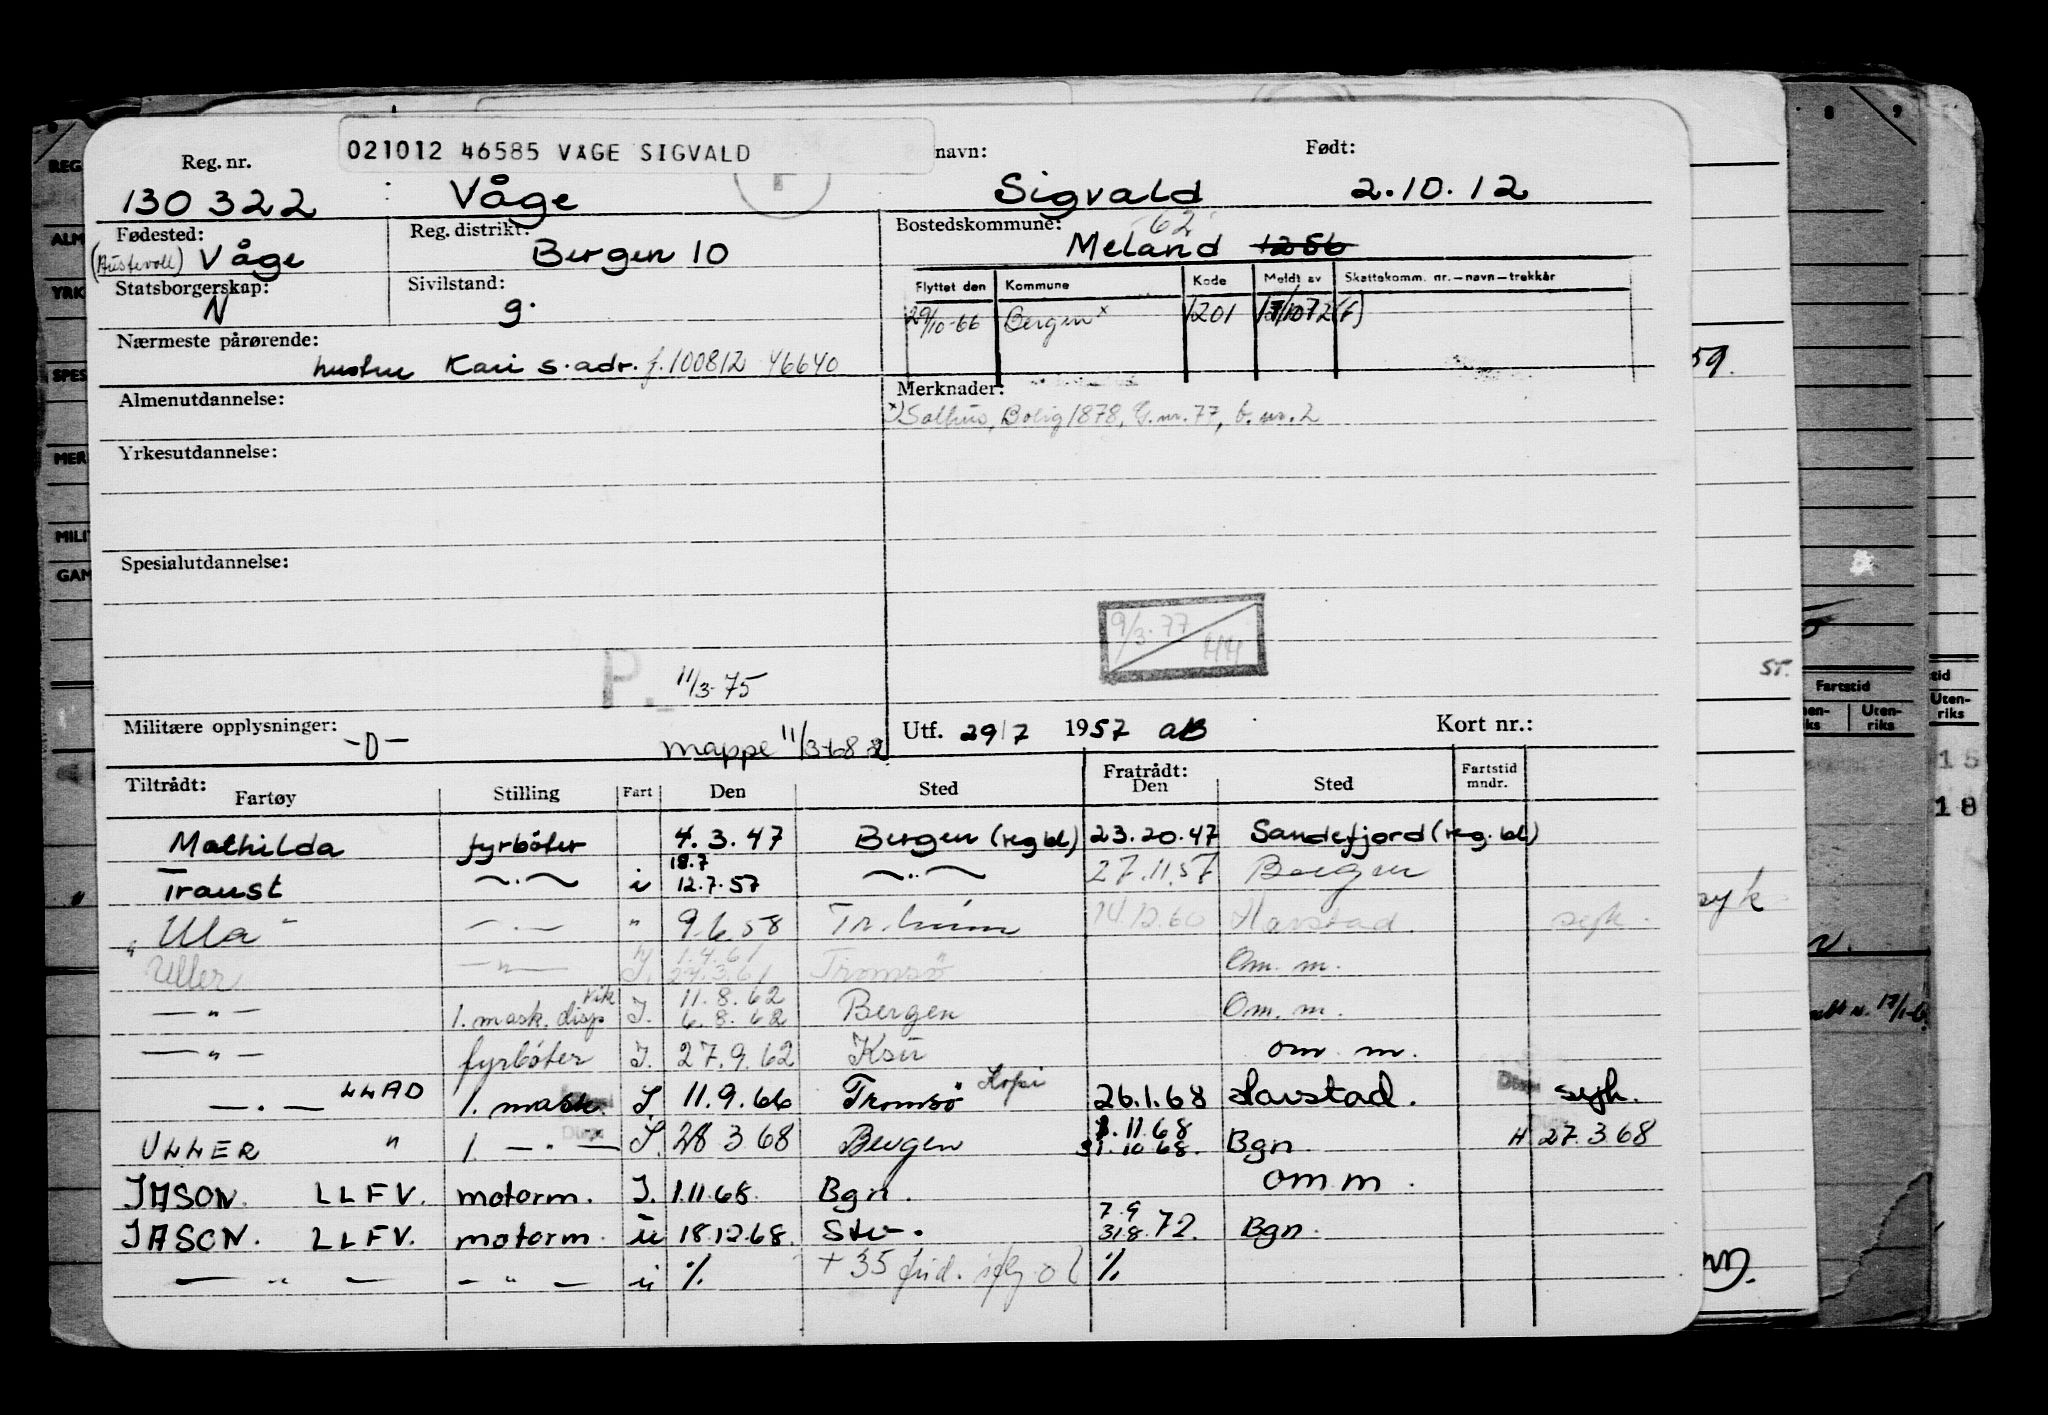 021012 46585 VÅGE SIGVALD
Reg. nr. navn: Født:
130 322 Våge Sigvald 2.10.12
Fødested: Reg. distrikt: Bostedskommune:
(Austevoll) Våge Bergen 10 Meland 1256 62
Statsborgerskap: Sivilstand:
N g.
Flyttet den Kommune Kode Meldt av Skattekomm. nr.—navn—trekkår
29/10-66 Bergen x 1201
Nærmeste pårørende:
hustru Kari s. adr. f. 100812 46640
Almenutdannelse: Merknader:
x) Salhus, Bolig 1878, G.nr. 77, b.nr. 2
Yrkesutdannelse:
Spesialutdannelse:
9/3-77
P. 11/3-75
Militære opplysninger: Utf. 29/7 1957 aB Kort nr.:
-0- mappe 11/3-68
Tiltrådt: Fratrådt: Fartstid
Fartøy Stilling Fart Den Sted Den Sted mndr.
Mathilda fyrbøter 4.3.47 Bergen (reg bl) 23.20.47 Sandefjord (reg. bl)
18.7
Traust —·— i 12.7.57 —··— 27.11.57 Bergen
" Ula - —·— " 9.6.58 Tr.heim 14.12.60 Harstad syk.
1.4.61
Uller —"— I. 27.3.61 Tromsø Om. m.
vik 11.8.62
—"— 1. mask. disp I. 6.8.62 Bergen Om. m.
—"— fyrbøter I. 27.9.62 om. m.
—·— LLAD 1. mask. I. 11.9.66 Tromsø Kopi 26.1.68 Harstad. syk.
1.11.68
ULLER " 1. —·— I. 28 3.68 Bergen 31.10 68. Bgn. H 27.3.68
JASON. LLFV. motorm. I. 1.11.68. Bgn. om m.
7.9
JASON. LLFV. motorm. u 18.12.68. 31.8.72. Bgn.
— " — - " — u % + 35 %
REG
ALM
YRK
SPES
MER
MILI
GAM
8 9
59.
55.
Fartstid
Uten-
riks
tid
Uten-
riks
15
18
syk